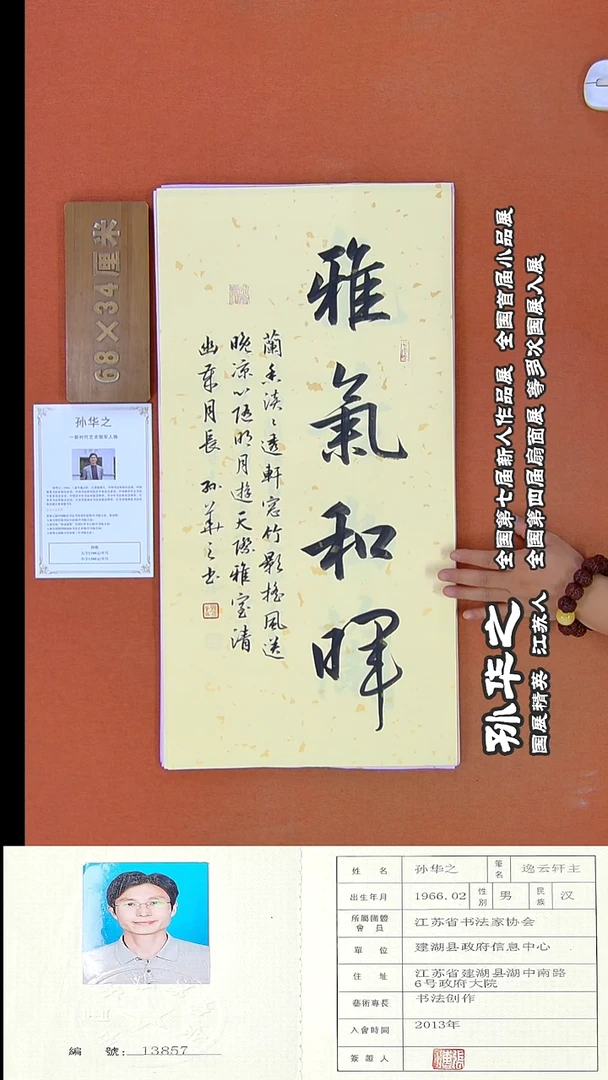 68×34厘米
孙华之
雅氣和暉
蘭香淡淡透軒窓竹影搖風送
晚凉心隨明月遊天際雅室清
幽歲月長 孙華之书
孙华之
国展精英 江苏人
全国第七届新人作品展 全国首届小品展
全国第四届扇面展 等多次国展入展
姓名 孙华之 筆名 逸云轩主
出生年月 1966.02 性別 男 民族 汉
所屬團體會員 江苏省书法家协会
單位 建湖县政府信息中心
住址 江苏省建湖县湖中南路
6号政府大院
藝術專長 书法创作
入會時間 2013年
簽證人
編號: 13857